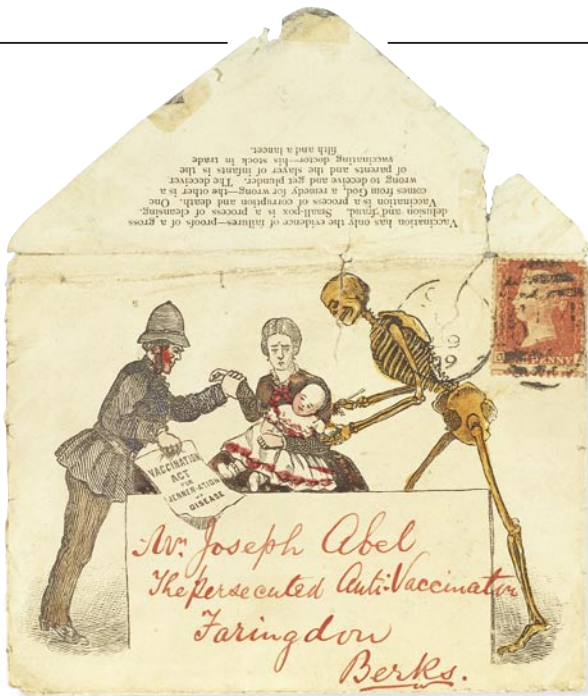 Vaccination has only the evidence of failures—proofs of a gross
delusion and fraud. Small-pox is a process of cleansing.
Vaccination is a process of corruption and death. One
comes from God, a remedy for wrong—the other is a
wrong to deceive and get plunder. The deceiver
of parents and the slayer of infants is the
vaccinating doctor—his stock in trade
filth and a lancet.
PENNY
VACCINATION
ACT
FOR
JENNER-ATION
OF
DISEASE
Mr. Joseph Abel
The persecuted Anti-Vaccinator
Faringdon
Berks.